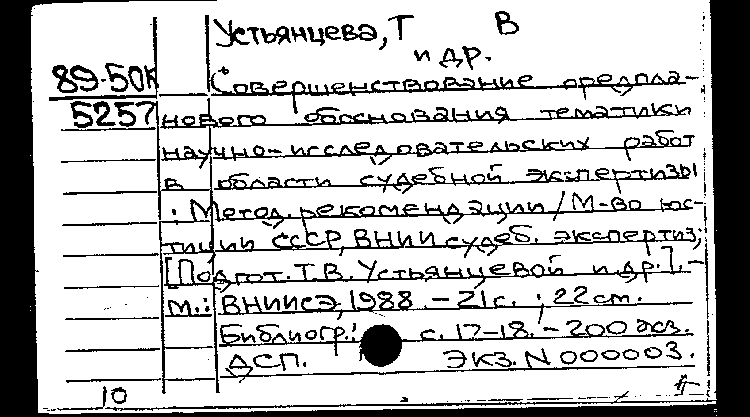 Устьянцева, Т В
и др.
89-50К Совершенствование предпла-
5257 нового обоснования тематики
научно-исследовательских работ
в области судебной экспертизы
: Метод. рекомендации / М-во юс-
тиции СССР, ВНИИ судеб. экспертиз;
[Подгот. Т.В. Устьянцевой и др.]. -
М.: ВНИИСЭ, 1988. - 21 с. ; 22 см.
Библиогр.: с. 17-18. - 200 экз.
ДСП. ЭКЗ. N 000003.
10